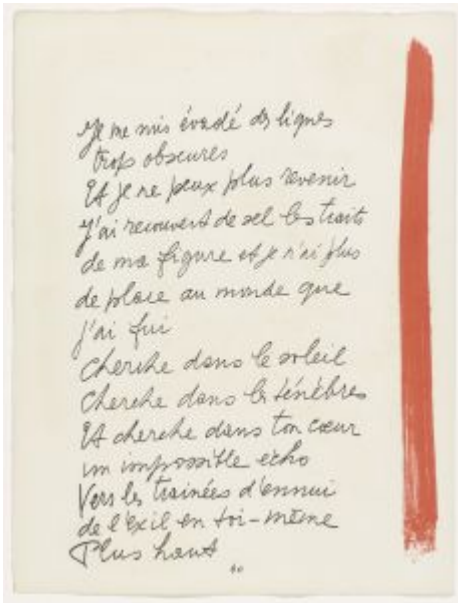 Je me suis évadé des lignes
trop obscures
Et je ne peux plus revenir
J'ai recouvert de sel les traits
de ma figure et je n'ai plus
de place au monde que
j'ai fui
Cherche dans le soleil
Cherche dans les ténèbres
Et cherche dans ton cœur
un impossible écho
Vers les traînées d'ennui
de l'exil en toi-même
Plus haut